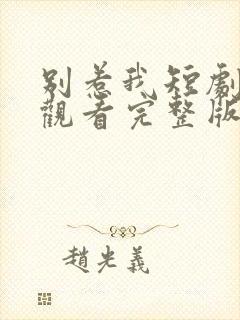 别惹我短劇
觀看完整版
趙光義